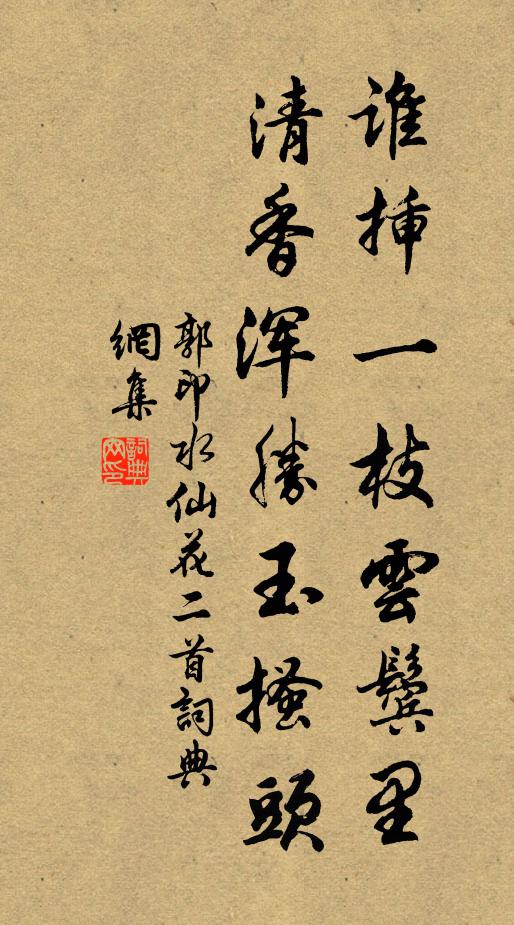 誰插一枝雲鬢里
清香浑勝玉搔頭
郭印水仙花二首詞典
網集
詞典網印